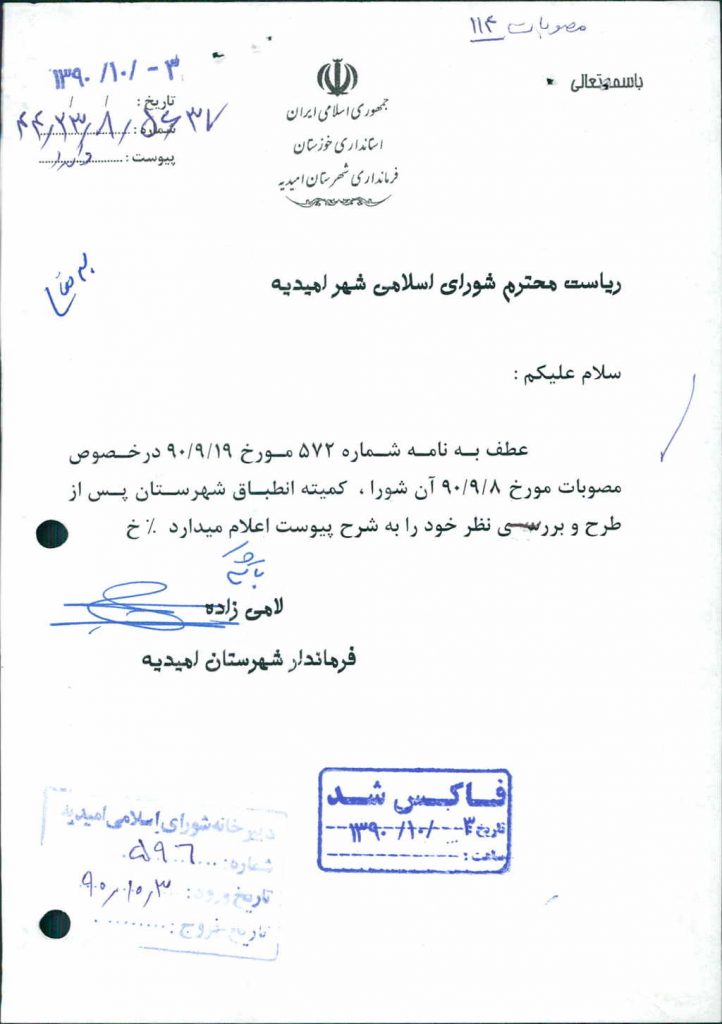 مصوبات ۱۱۴
باسمه تعالی
جمهوری اسلامی ایران
استانداری خوزستان
فرمانداری شهرستان امیدیه
۱۳۹۰/۱۰/-۳
تاریخ : / /
شماره :
پیوست : دارد
ریاست محترم شورای اسلامی شهر امیدیه
سلام علیکم :
عطف به نامه شماره ۵۷۲ مورخ ۹۰/۹/۱۹ درخصوص
مصوبات مورخ ۹۰/۹/۸ آن شورا ، کمیته انطباق شهرستان پس از
طرح و بررسی نظر خود را به شرح پیوست اعلام میدارد ٪ خ
لامی زاده
فرماندار شهرستان امیدیه
فاکس شد
تاریخ ۳-/۱۰/۱۳۹۰
ساعت :
دبیرخانه شورای اسلامی امیدیه
شماره: ۵۹۶
تاریخ ورود: ۹۰،۱۰،۳
تاریخ خروج :